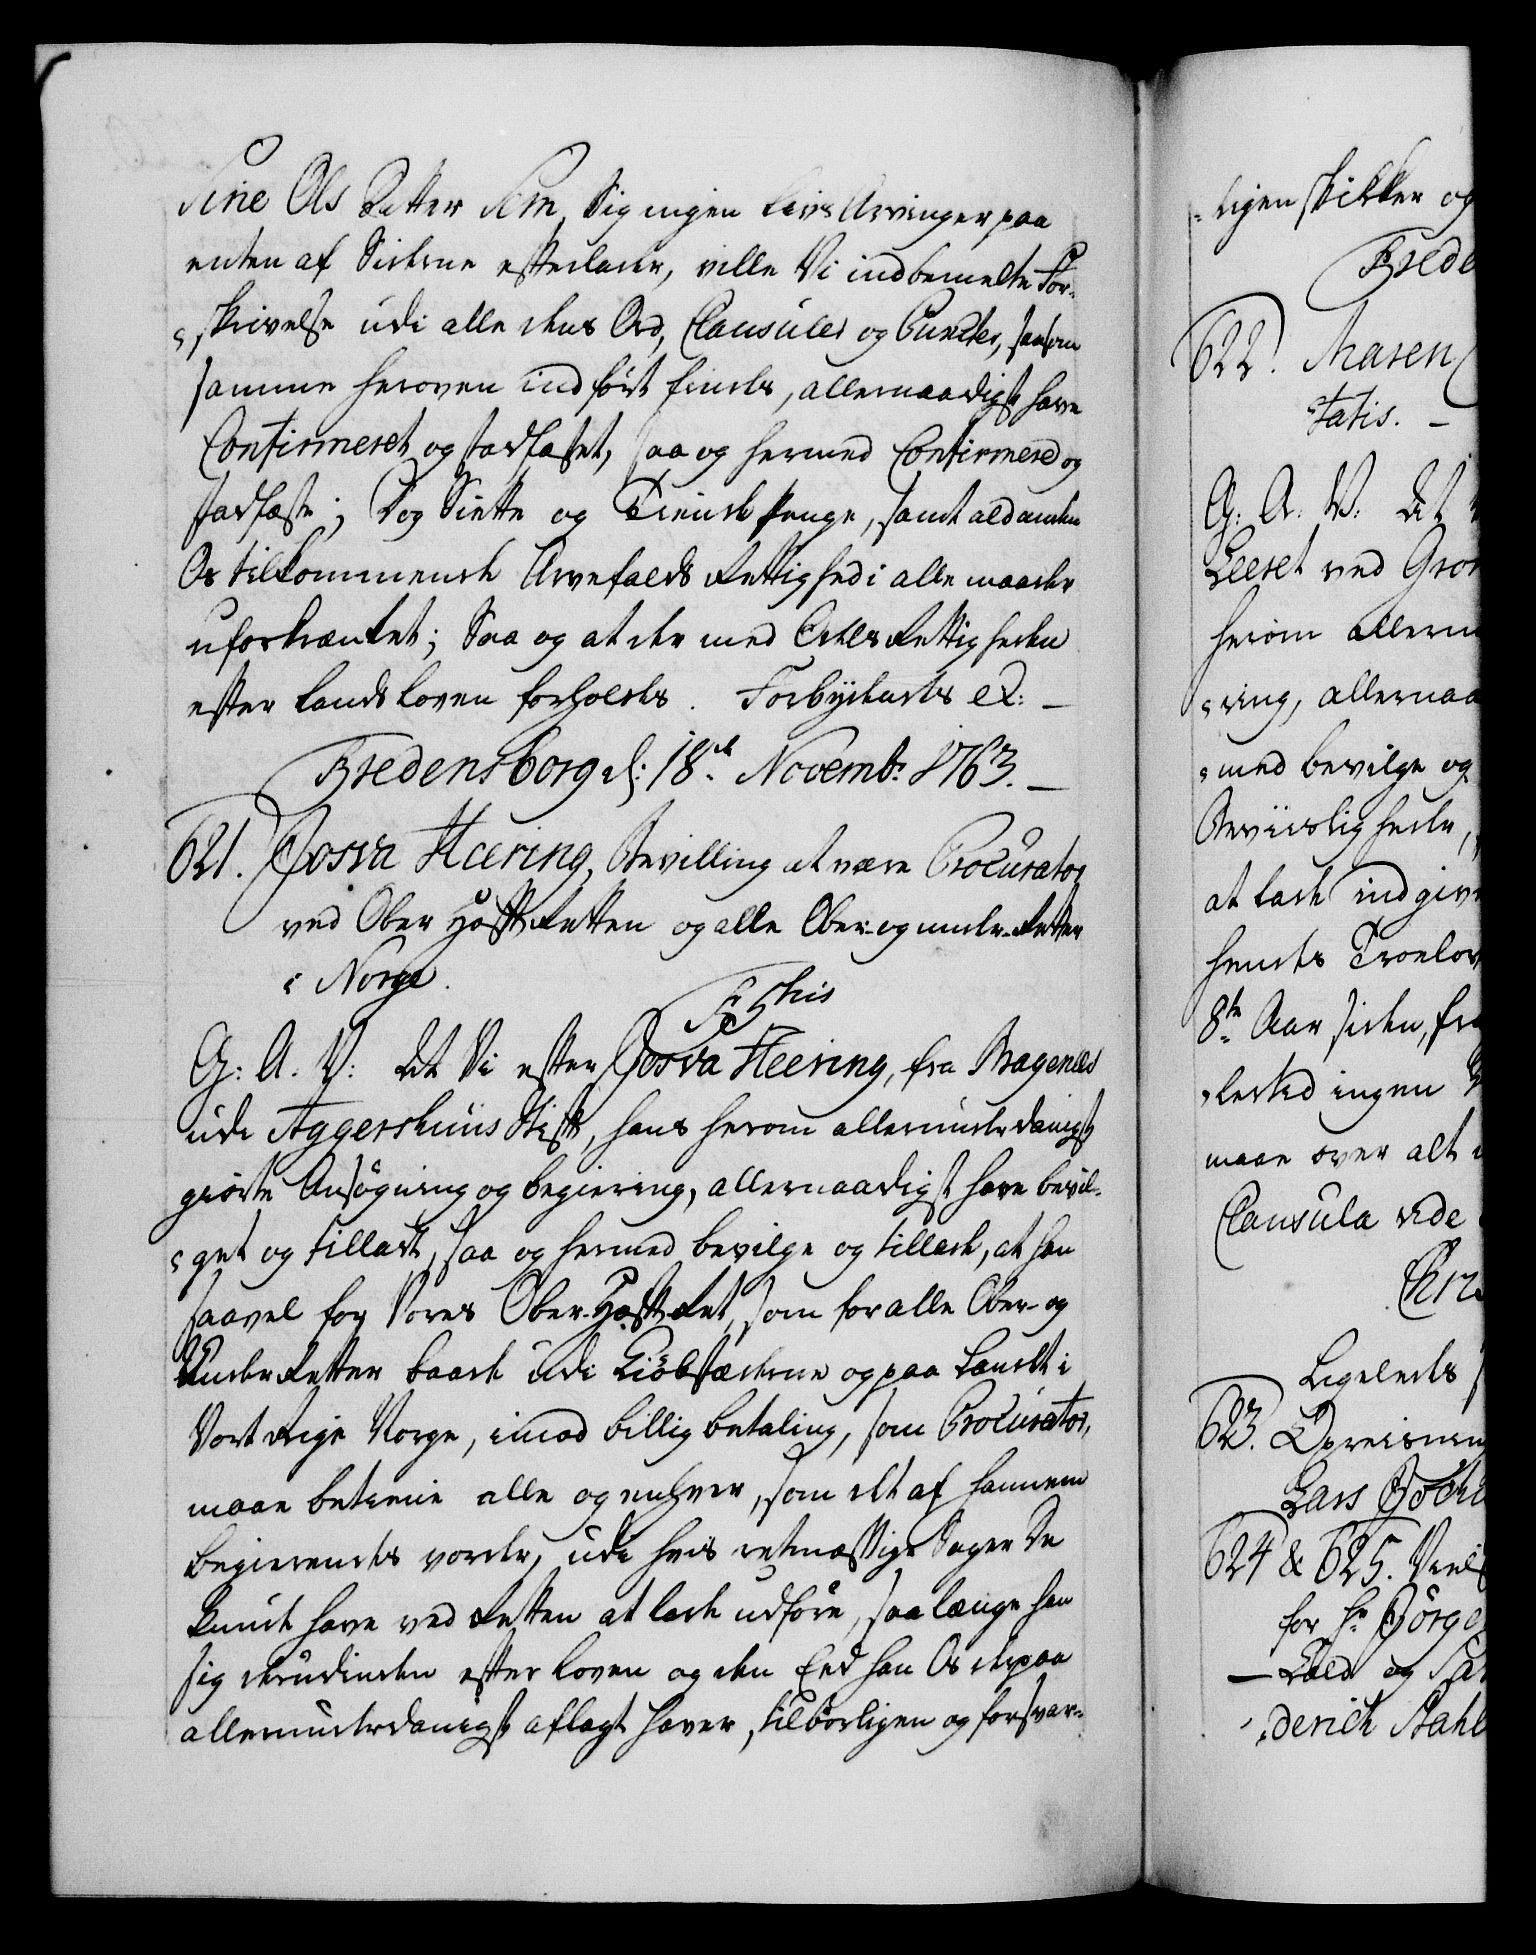 Sine Ols Datter Sem, Sig ingen Livs Arvinger paa
enten af Siderne efterlader, ville Vi indbemelte For-
skrivelse udi alle dens Ord, Clausuler og Puncter, saasom
samme heroven indført findes, allernaadigst have
Confirmeret og stadfæstet, saa og hermed Confirmere og
stadfæste; Dog Siette og Tiende Penge, samt ald anden
Os tilkommende Arvefalds Rettighed i alle maader
uforkrænket; Saa og at der med Odels Rettigheden
efter Lands Loven forholdes. Forbydendes etc: —
Fredensborg d: 18de Novembr 1763. —
621. Josva Heering, Bevilling at være Procurator
ved Ober Hoff Retten og alle Ober- og under-Retter
i Norge.
G: A. V: At Vi efter Josva Heering, fra Bragenæs
udi Aggershuus Stift, hans herom allerunderdanigst
giorte Ansøgning og begiering, allernaadigst have bevil-
get og tilladt, saa og hermed bevilge og tillade, at han
saavel for Vores Ober-Hoff-Ret, som for alle Ober- og
Under Retter baade udi Kiøbstæderne og paa Landet i
Vort Rige Norge, imod billig betaling, som Procurator,
maae betiene alle og enhver, som det af hannem
begierendes vorder, udi hvis retmæssige Sager De
kunde have ved Retten at lade udføre, saa længe han
sig derudinden efter Loven og den Eed han Os derpaa
allerunderdanigst aflagt haver, tilbørligen og forsvar-
ligen skikker og
Frede
622. Maren
tatis. —
G: A. V: At
Leeret ved Gro
herom allern
ring, allernaa
med bevilge og
at lade indgiv
hendes Troelov
8te Aar siden, fra
ingen
maae over alt
Clausula vide
Chri
Ligeledes
623. Opreisning
Lars
624 & 625.
for Hr Jørge
derich Stahl